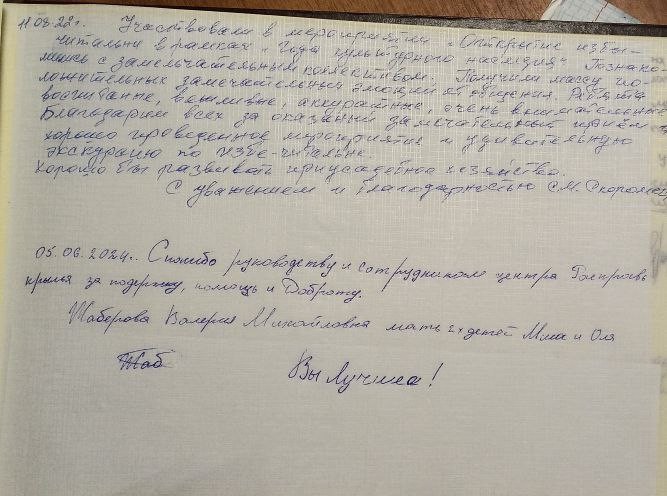 11.08.22г. Участвовали в мероприятии "Открытие избы-
читальни в рамках "Года культурного наследия". Познако-
мились с замечательным коллективом. Получили массу по-
ложительных замечательных эмоций от общения. Ребята
воспитанные, вежливые, аккуратные, очень внимательные.
Благодарим всех за оказанный замечательный приём
хорошо проведенное мероприятие и удивительную
экскурсию по избе-читальне.
Хорошо бы развивать приусадебное хозяйство.
С уважением и благодарностью
05.06.2024г. Спасибо руководству и сотрудникам центра
крылья за подержку, помощь и Доброту.
Валерия Михайловна мать 2х детей и Оля
Вы Лучшие!